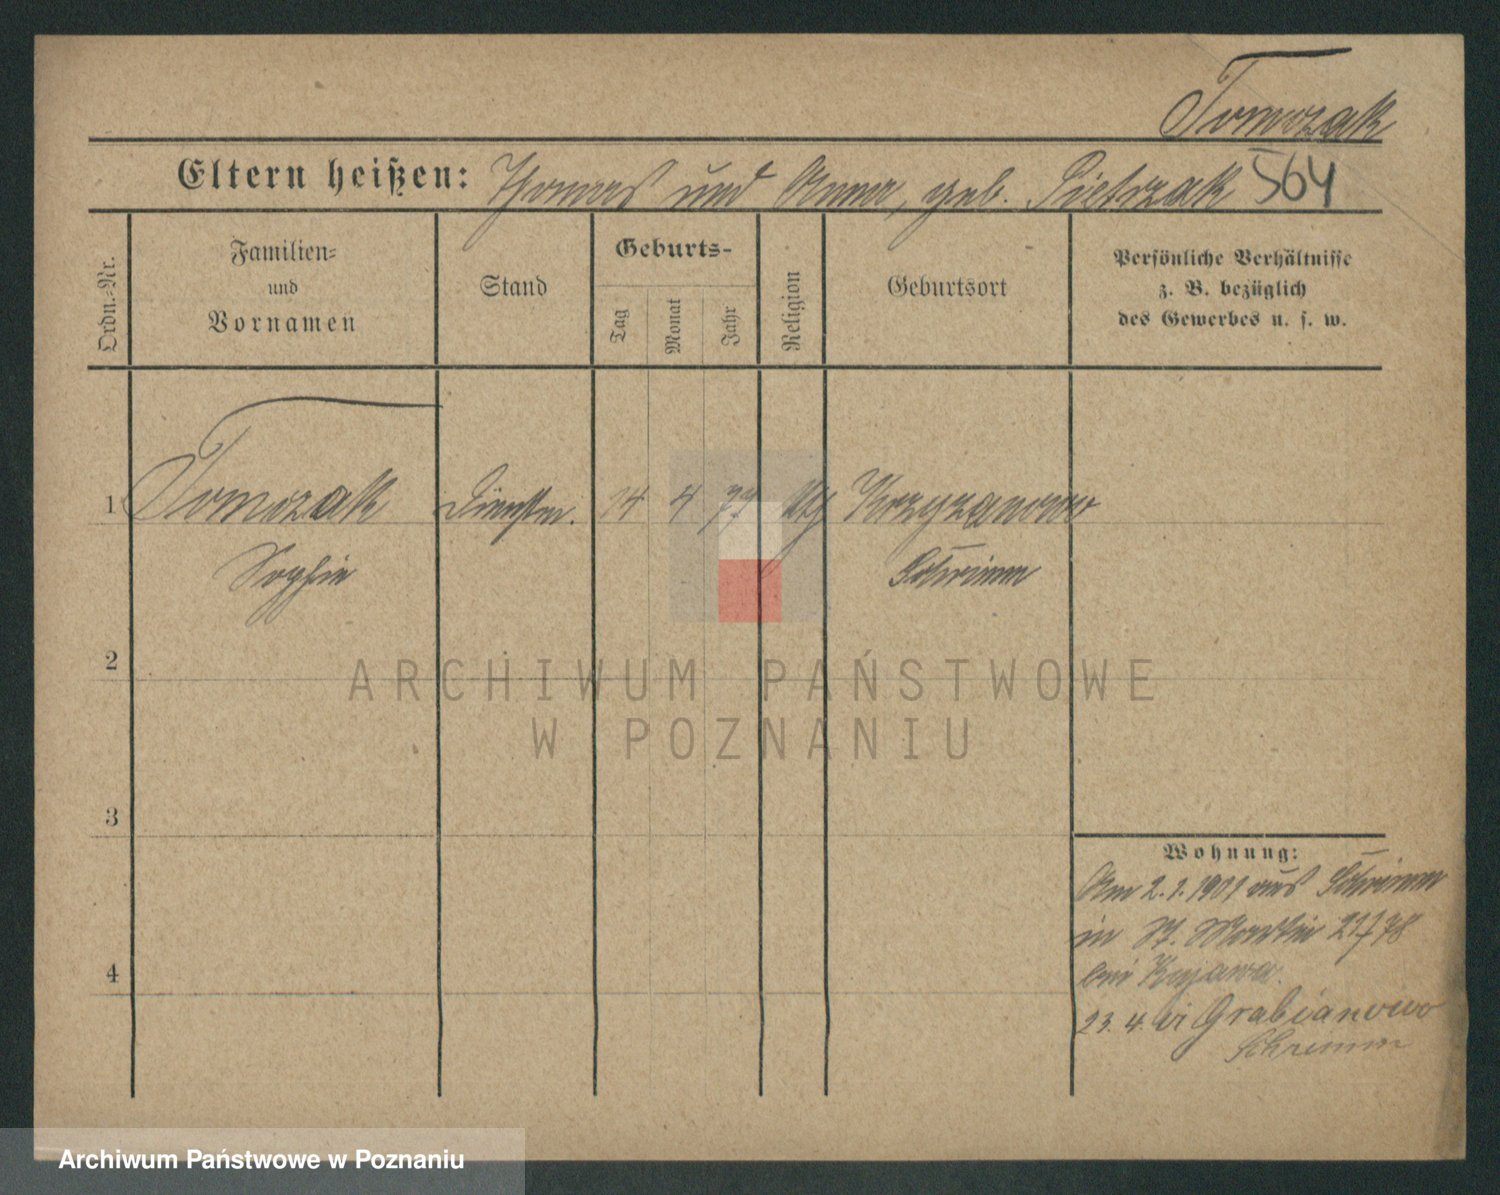 Tomczak
Eltern heißen: Thomas und Anna, geb. Pietrzak 564
Ordn.-Nr.
Familien-
und
Vornamen
Stand
Geburts-
Tag
Monat
Jahr
Religion
Geburtsort
Persönliche Verhältnisse
z. B. bezüglich
des Gewerbes u. s. w.
1 Tomczak Dienstm. 14 4 77 Krzyzanowo
Sophie Schrimm
2
3
4
Wohnung:
Am 2. 1. 1901 aus Schrimm
in St. Martin 78
bei Kujawa.
23. 4. Grabianowo
Schrimm
ARCHIWUM PAŃSTWOWE
W POZNANIU
Archiwum Państwowe w Poznaniu